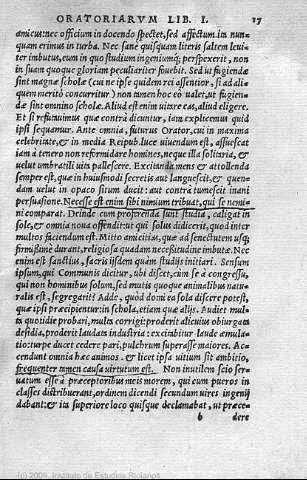 ORATORIARVM LIB. I. 17
amicus: nec officium in docendo spectet, sed affectum. ita nun
quam erimus in turba. Nec sanè quisquam literis saltem leui-
ter imbutus, eum in quo studium ingeniumq́; perspexerit, non
in suam quoque gloriam peculiariter fouebit. Sed ut fugiendæ
sint magnæ scholæ (cui ne ipse quidem rei assentior, si ad ali-
quem meritò concurritur) non tamen hoc eò ualet, ut fugien-
dæ sint omnino scholæ. Aliud est enim uitare eas, aliud eligere.
Et si refutauimus quæ contrà dicuntur, iam explicemus quid
ipsi sequamur. Ante omnia, futurus Orator, cui in maxima
celebritate, & in media Reipub. luce uiuendum est, assuescat
iam à tenero non reformidare homines, neque illa solitaria, &
uelut umbratili uita pallescere. Excitanda mens & attollenda
semper est, quæ in huiusmodi secretis aut languescit, & quen-
dam uelut in opaco situm ducit: aut contrà tumescit inani
persuasione. Necesse est enim sibi nimium tribuat, qui se nemi-
ni comparat. Deinde cum proferenda sunt studia, caligat in
sole, & omnia noua offendit: ut qui solus didicerit, quod inter
multos faciendum est. Mitto amicitias, quæ ad senectutem usq́;
firmissimè durant, religiosa quadam necessitudine imbutæ. Nec
enim est sanctius, sacris ijsdem quàm studijs initiari. Sensum
ipsum, qui Communis dicitur, ubi discet, cùm se à congressu,
qui non hominibus solum, sed mutis quoque animalibus natu-
ralis est, segregarit? Adde, quòd domi ea sola discere potest,
quæ ipsi præcipientur: in schola, etiam quæ alijs. Audiet mul-
ta quotidie probari, multa corrigi: proderit alicuius obiurgata
desidia, proderit laudata industria: excitabitur laude æmula-
tio: turpe ducet cedere pari, pulchrum superasse maiores. Ac-
cendunt omnia hæc animos. & licet ipsa uitium sit ambitio,
frequenter tamen causa uirtutum est. Non inutilem scio ser-
uatum esse à præceptoribus meis morem, qui cum pueros in
classes distribuerant, ordinem dicendi secundum uires ingenij
dabant: & ita superiore loco quisque declamabat, ut præce-
b dere
(c) 2009, Instituto de Estudios Riojanos